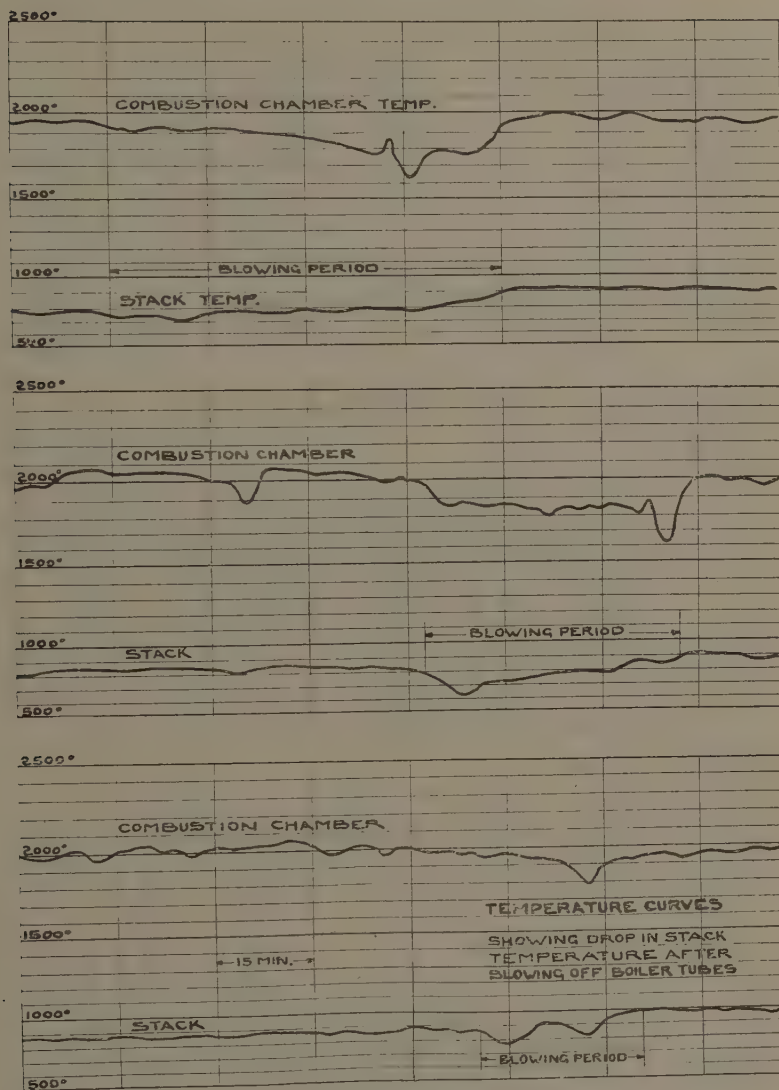 2500°
COMBUSTION CHAMBER TEMP.
2000°
1500°
1000°
BLOWING PERIOD
STACK TEMP.
500°
2500°
COMBUSTION CHAMBER
2000°
1500°
1000°
BLOWING PERIOD
STACK
500°
2500°
COMBUSTION CHAMBER
2000°
TEMPERATURE CURVES
1500°
SHOWING DROP IN STACK
15 MIN.
TEMPERATURE AFTER
BLOWING OFF BOILER TUBES
1000°
STACK
BLOWING PERIOD
500°